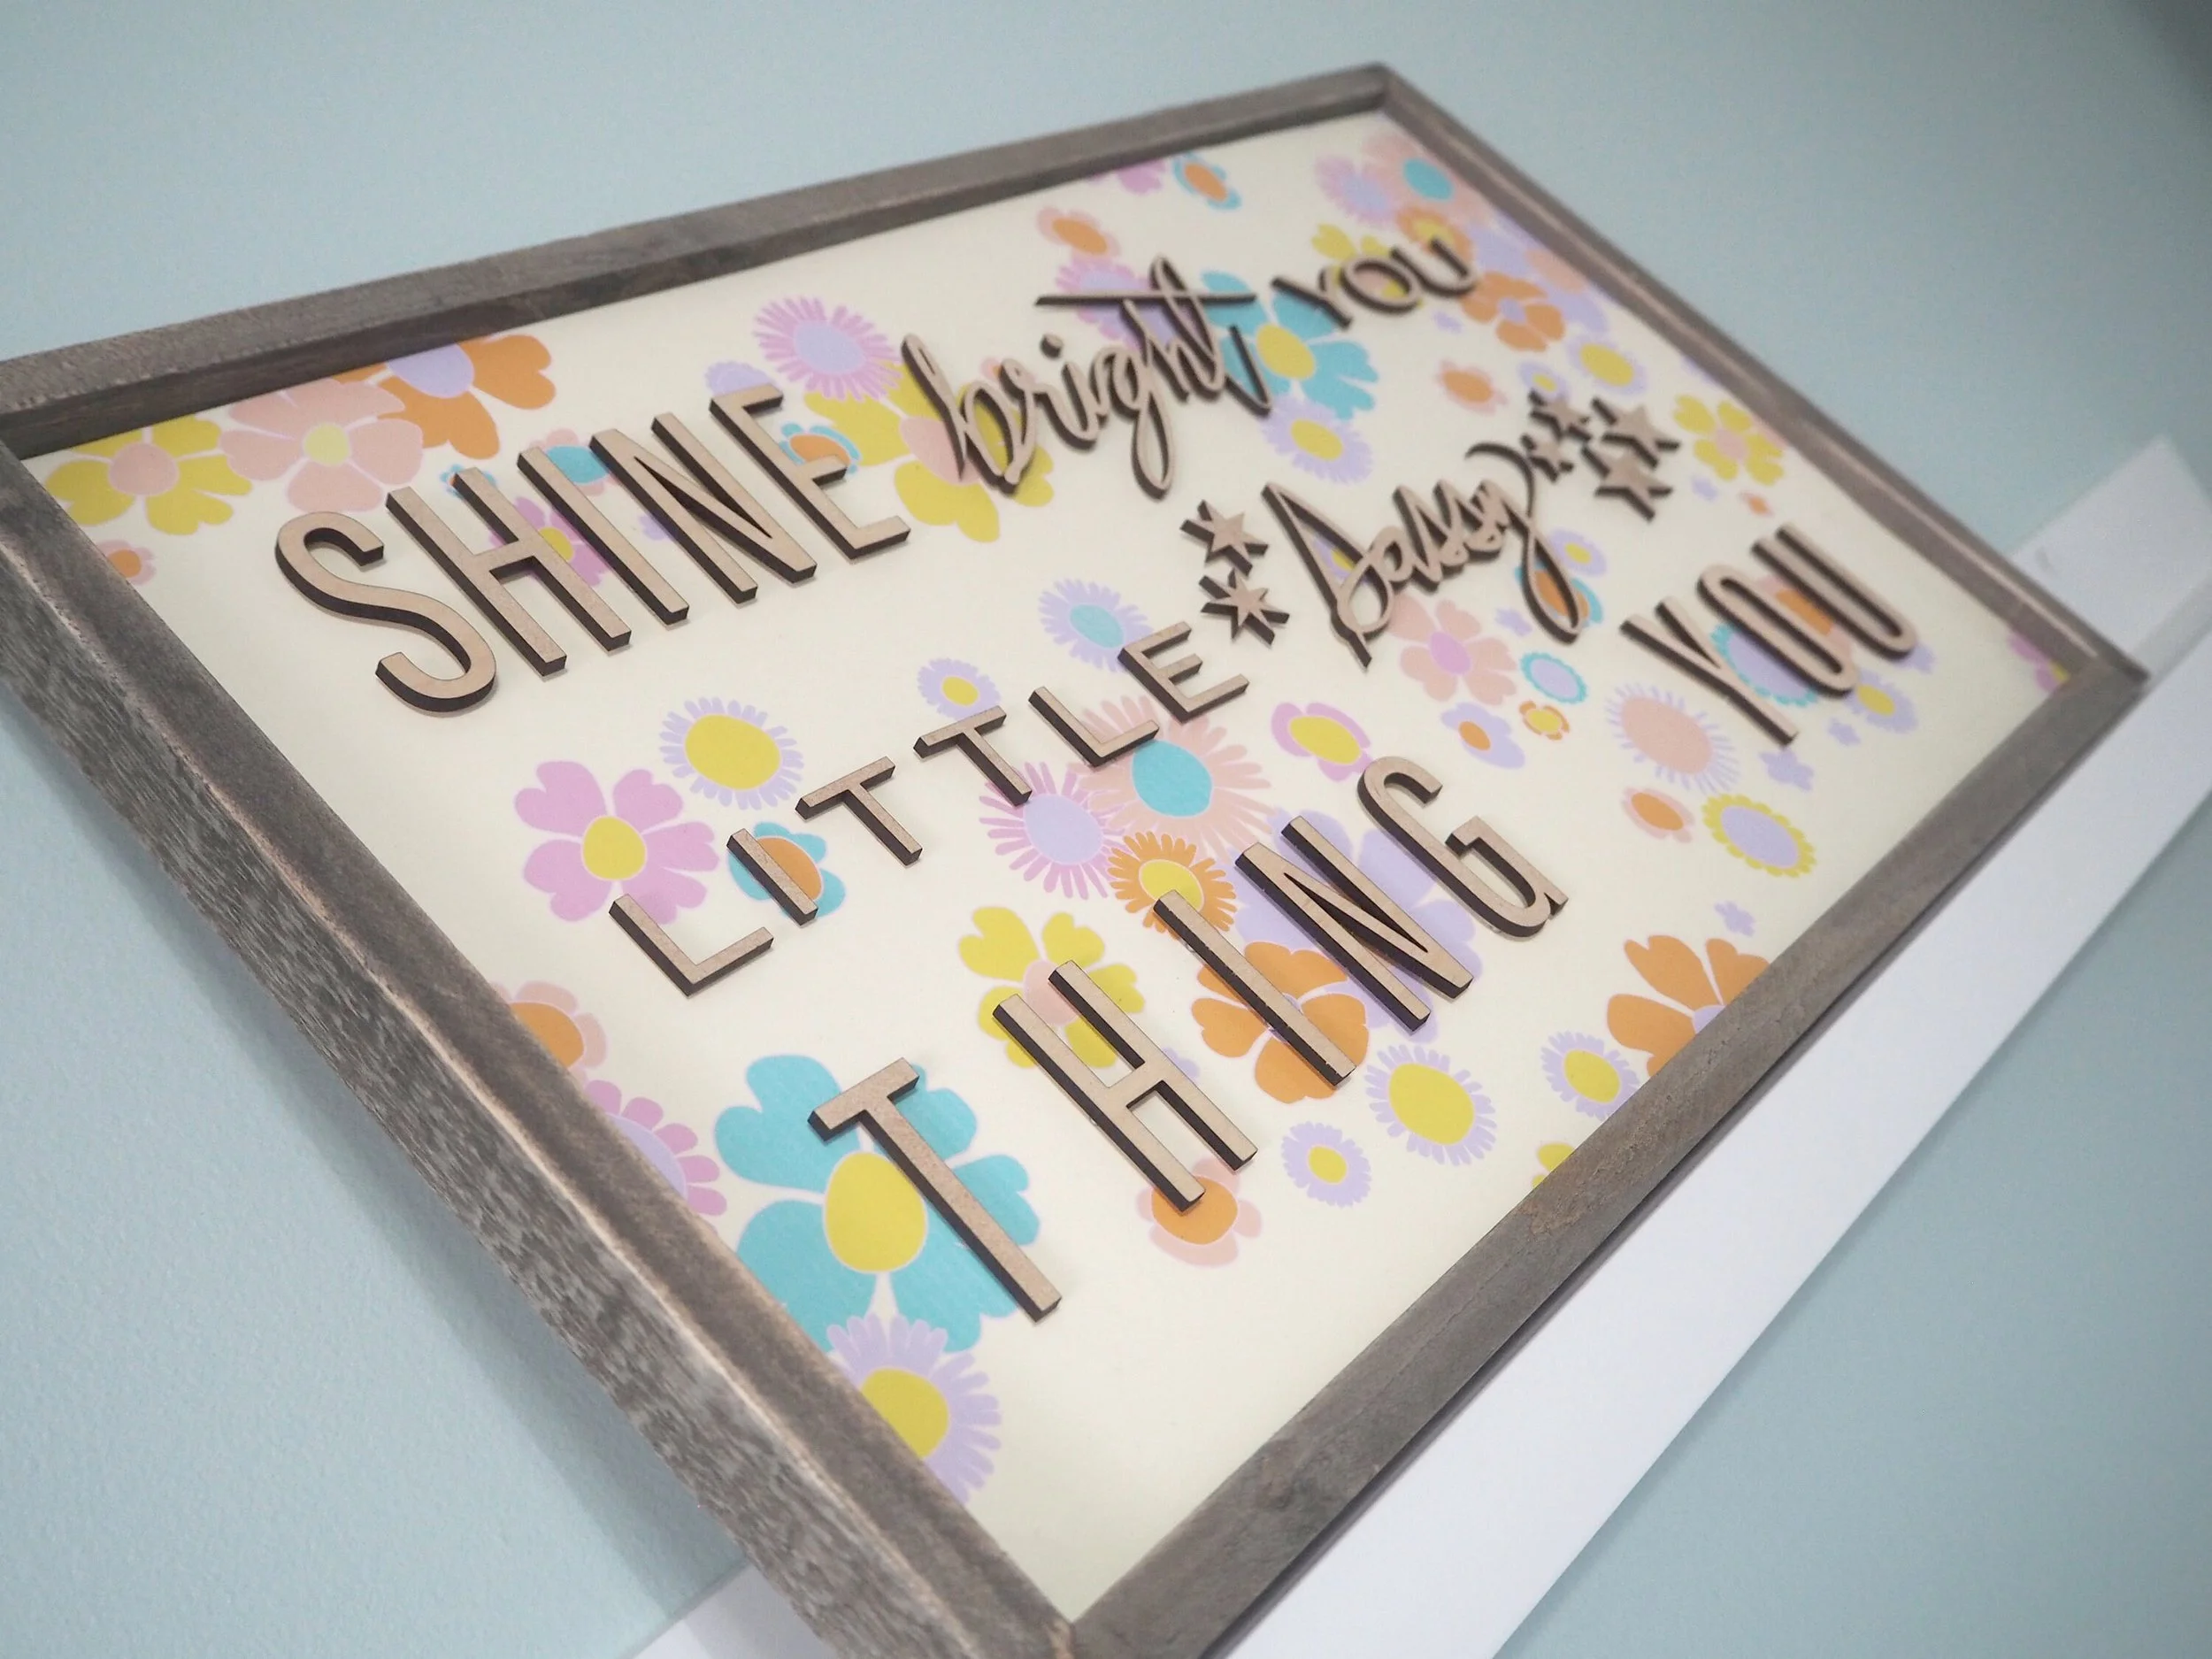 SHINE bright YOU
LITTLE Sassy
THING YOU